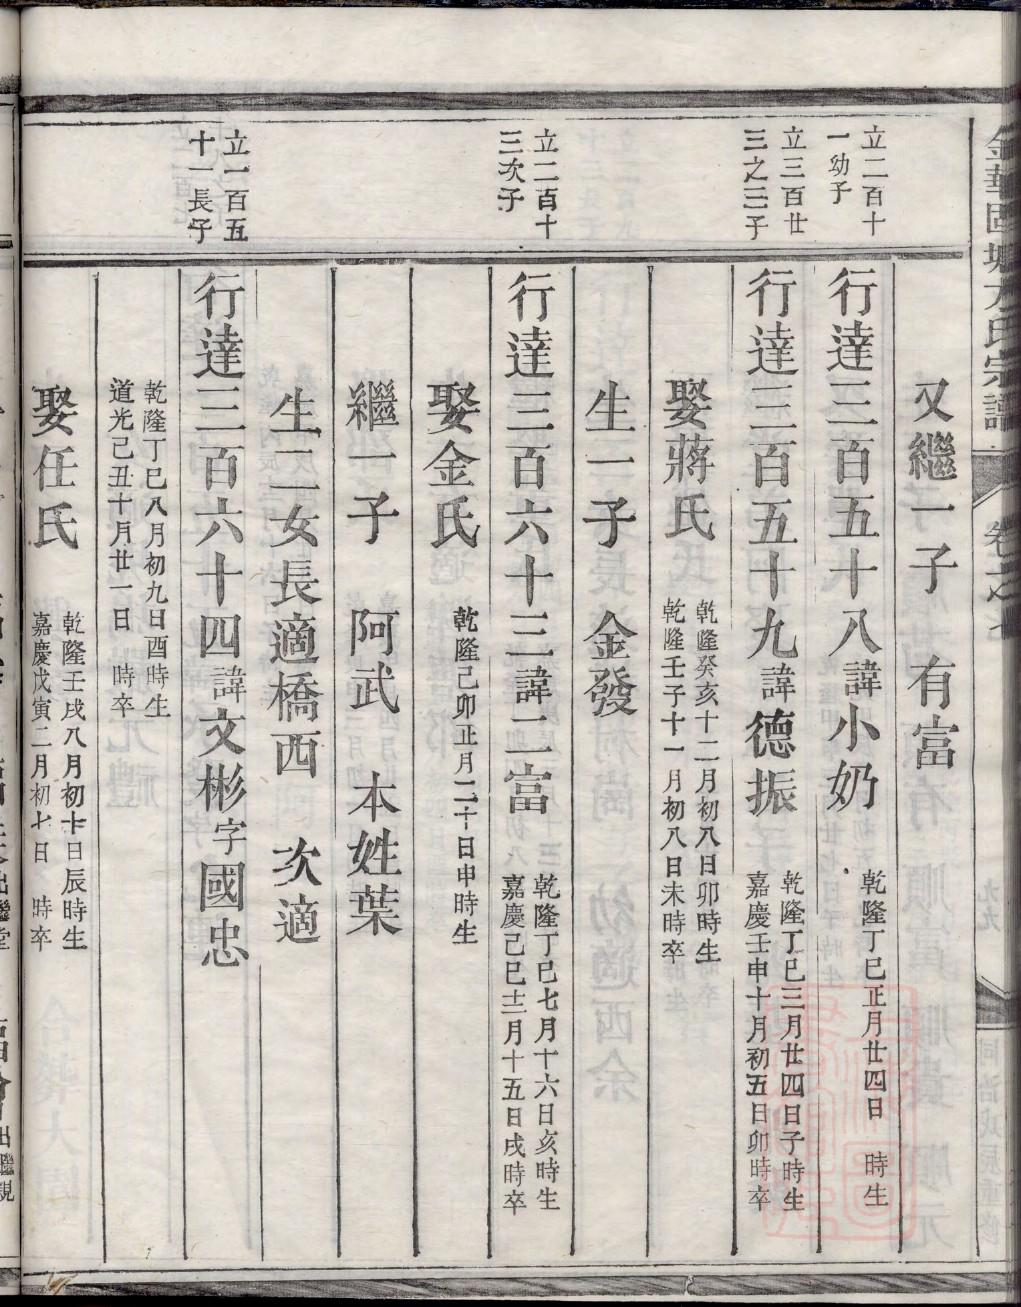 又繼一子 有富
立二百十一幼子
行達三百五十八諱小奶 乾隆丁巳正月廿四日 時生
立三百廿三之三子
行達三百五十九諱德振 乾隆丁巳三月廿四日子時生
嘉慶壬申十月初五日卯時卒
娶蔣氏 乾隆癸亥十二月初八日卯時生
乾隆壬子十一月初八日未時卒
生一子 金發
立二百十三次子
行達三百六十三諱二富 乾隆丁巳七月十六日亥時生
嘉慶己巳十二月十五日戌時卒
娶金氏 乾隆己卯正月二十日申時生
繼一子 阿武 本姓葉
生二女長適橋西 次適
立一百五十一長子
行達三百六十四諱文彬字國忠
乾隆丁巳八月初九日酉時生
道光己丑十月廿一日 時卒
娶任氏 乾隆壬戌八月初十日辰時生
嘉慶戊寅二月初七日 時卒